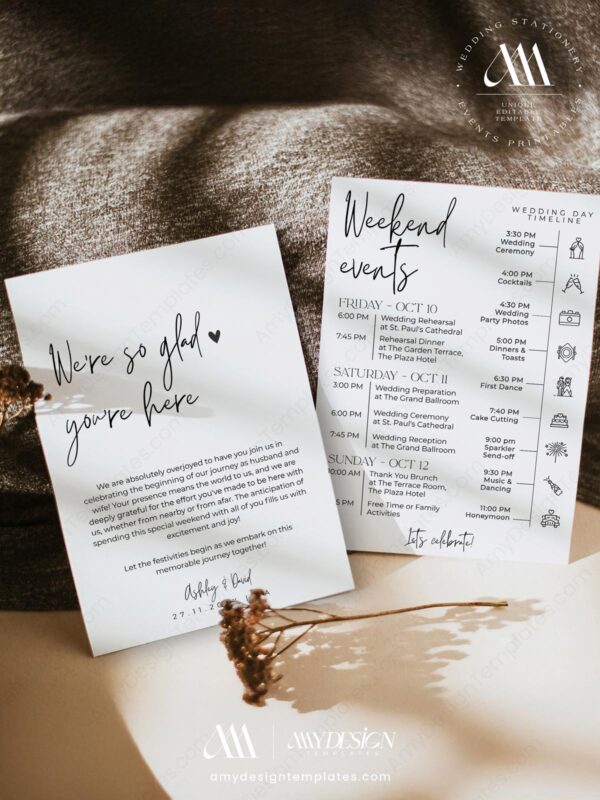 WEDDING STATIONERY
UNIQUE
EDITABLE
TEMPLATE
EVENTS PRINTABLES
We're so glad
you're here
We are absolutely overjoyed to have you join us in
celebrating the beginning of our journey as husband and
wife! Your presence means the world to us, and we are
deeply grateful for the effort you've made to be here with
us, whether from nearby or from afar. The anticipation of
spending this special weekend with all of you fills us with
excitement and joy!
Let the festivities begin as we embark on this
memorable journey together!
Ashley & David
27.11.
Weekend
events
FRIDAY - OCT 10
6:00 PM Wedding Rehearsal
at St. Paul's Cathedral
7:45 PM Rehearsal Dinner
at The Garden Terrace,
The Plaza Hotel
SATURDAY - OCT 11
3:00 PM Wedding Preparation
at The Grand Ballroom
6:00 PM Wedding Ceremony
at St. Paul's Cathedral
7:45 PM Wedding Reception
at The Grand Ballroom
SUNDAY - OCT 12
10:00 AM Thank You Brunch
at The Terrace Room,
The Plaza Hotel
5 PM Free Time or Family
Activities
WEDDING DAY
TIMELINE
3:30 PM
Wedding
Ceremony
4:00 PM
Cocktails
4:30 PM
Wedding
Party Photos
5:00 PM
Dinners &
Toasts
6:30 PM
First Dance
7:40 PM
Cake Cutting
9:00 pm
Sparkler
Send-off
9:30 PM
Music &
Dancing
11:00 PM
Honeymoon
Let's celebrate!
AMYDESIGN
TEMPLATES
amydesigntemplates.com